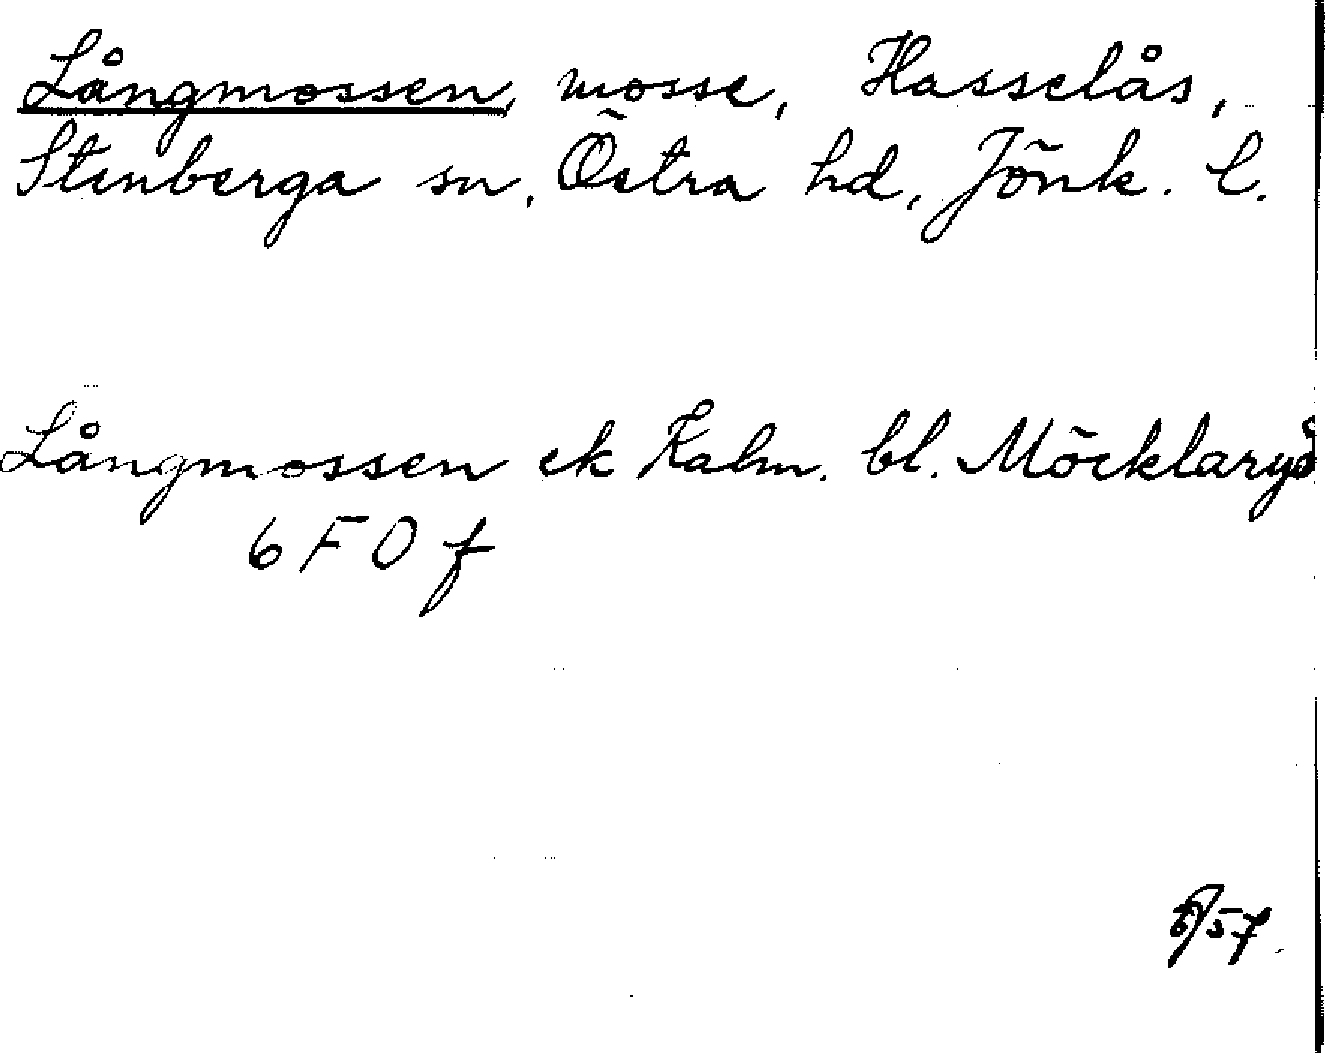 Långmossen, mosse, Hasselås,
Stenberga sn, Östra hd, Jönk. l.
Långmossen ek Kalm. bl. Möcklaryd
6 F 0 f